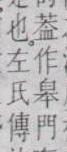 葢作皋門
也。左氏傳